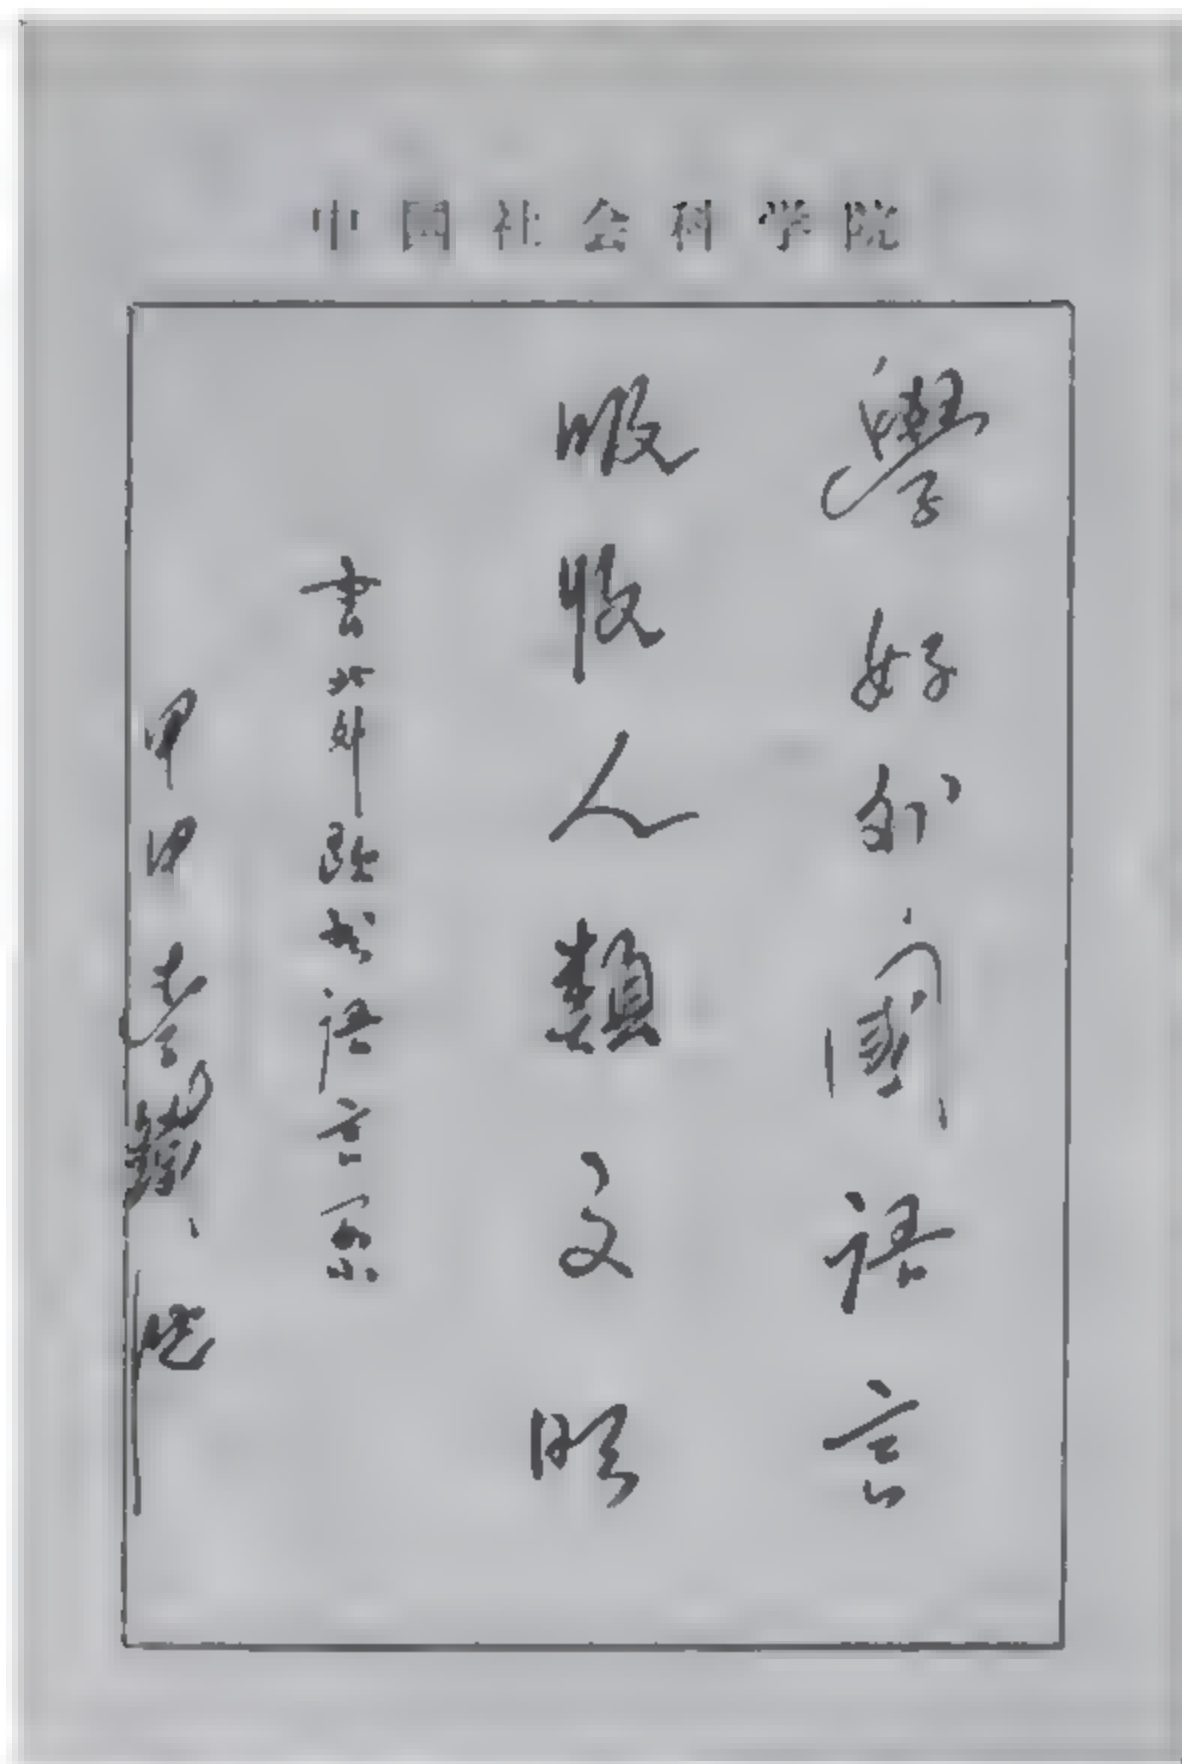 中国社会科学院
學好外國語言
吸收人類文明
書北外欧 語言系
甲申春